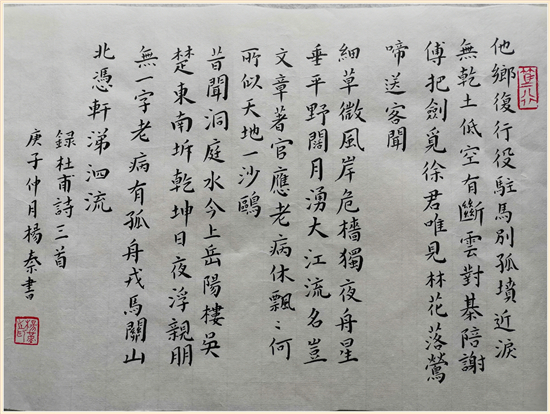 他鄉復行役駐馬別孤墳近淚
無乾土低空有斷雲對棊陪謝
傅把劍覓徐君唯見林花落鶯
啼送客聞
細草微風岸危檣獨夜舟星
垂平野闊月湧大江流名豈
文章著官應老病休飄〻何
所似天地一沙鷗
昔聞洞庭水今上岳陽樓吳
楚東南坼乾坤日夜浮親朋
無一字老病有孤舟戎馬關山
北憑軒涕泗流
録杜甫詩三首
庚子仲月楊秦書